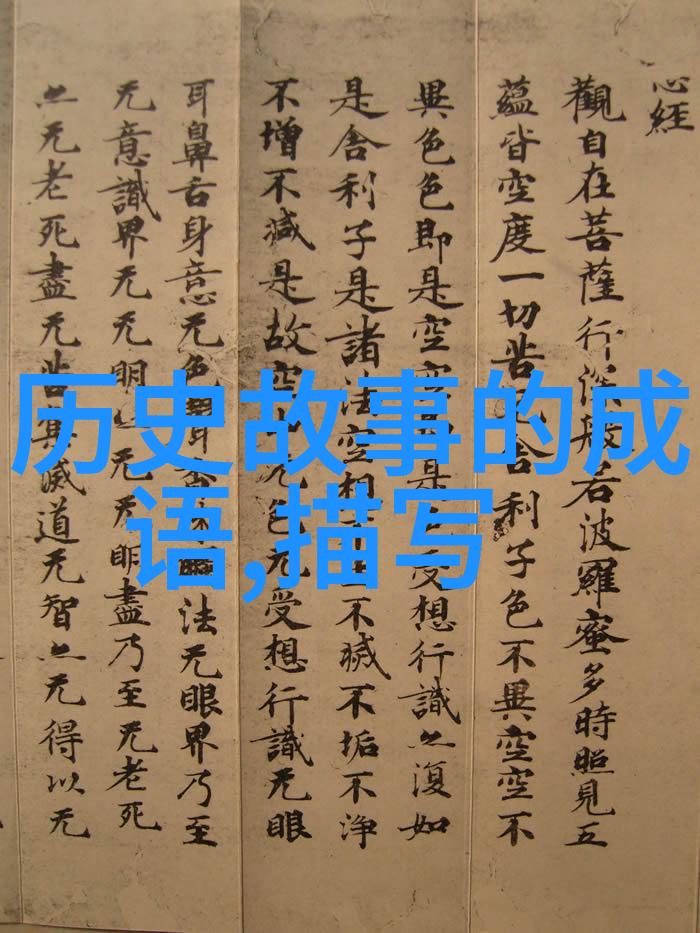 心經
觀自在菩薩行深般若波羅蜜多時照見五
蘊皆空度一切苦厄舍利子色不異空空不
異色色即是空空是受想行識亦復如
是舍利子是諸法空相不滅不垢不淨
不增不減是故空无色无受想行識无眼
耳鼻舌身意无色聲香法无眼界乃至
无意識界无无明亦无无明盡乃至无老死
亦无老死盡无苦集滅道无智亦无得以无
历史故事的成
语,描写